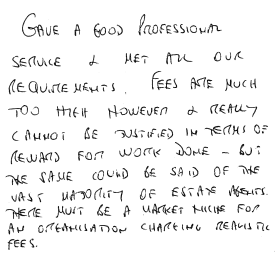 GAVE A GOOD PROFESSIONAL
SERVICE & MET ALL OUR
REQUIREMENTS. FEES ARE MUCH
TOO HIGH HOWEVER & REALLY
CANNOT BE JUSTIFIED IN TERMS OF
REWARD FOR WORK DONE - BUT
THE SAME COULD BE SAID OF THE
VAST MAJORITY OF ESTATE AGENTS.
THERE MUST BE A MARKET NICHE FOR
AN ORGANISATION CHARGING REALISTIC
FEES.